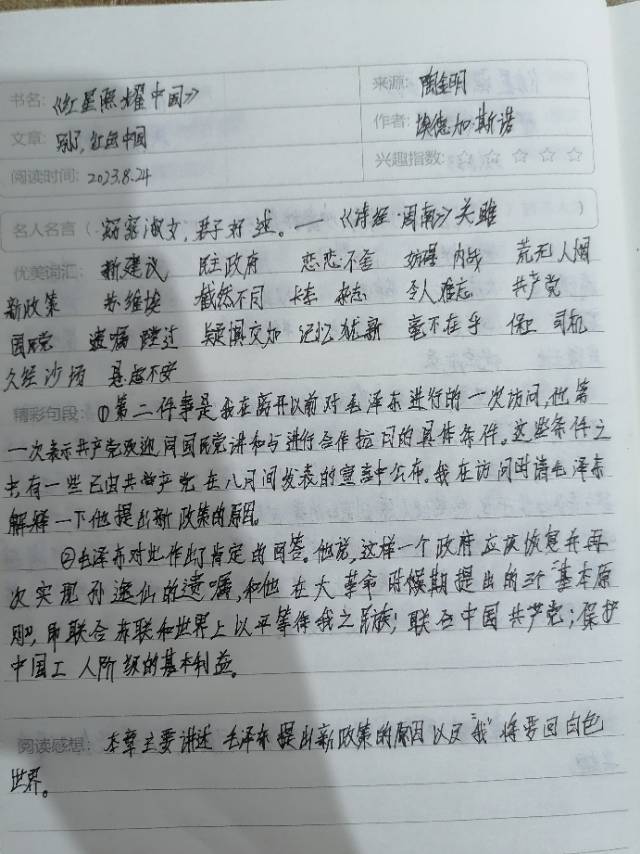 书名：《红星照耀中国》
来源：陶金明
文章：别了，红色中国
作者：埃德加·斯诺
阅读时间：2023.8.24
兴趣指数：☆ ☆ ☆ ☆ ☆
名人名言（窈窕淑女，君子好逑。—《诗经·周南》关雎）
优美词汇：新建议 民主政府 恋恋不舍 妨碍 内战 荒无人烟
新政策 苏维埃 截然不同 杂志 令人难忘 共产党
国民党 遗嘱 蹚过 疑惧交加 记忆犹新 毫不在乎 保卫 司机
久经沙场 忐忑不安
精彩句段：①第二件事是我在离开以前对毛泽东进行的一次访问，他第
一次表示共产党欢迎同国民党讲和与进行合作抗日的具体条件。这些条件之
中有一些已由共产党在八月间发表的宣言中公布。我在访问时请毛泽东
解释一下他提出新政策的原因。
②毛泽东对此作出了肯定的回答。他说，这样一个政府应该恢复并再
次实现孙逸仙的遗嘱，和他在大革命时候期提出的三个“基本原
则”，即联合苏联和世界上以平等待我之民族；联合中国共产党；保护
中国工人阶级的基本利益。
阅读感想：本章主要讲述毛泽东提出新政策的原因以及“我”将要回白色
世界。